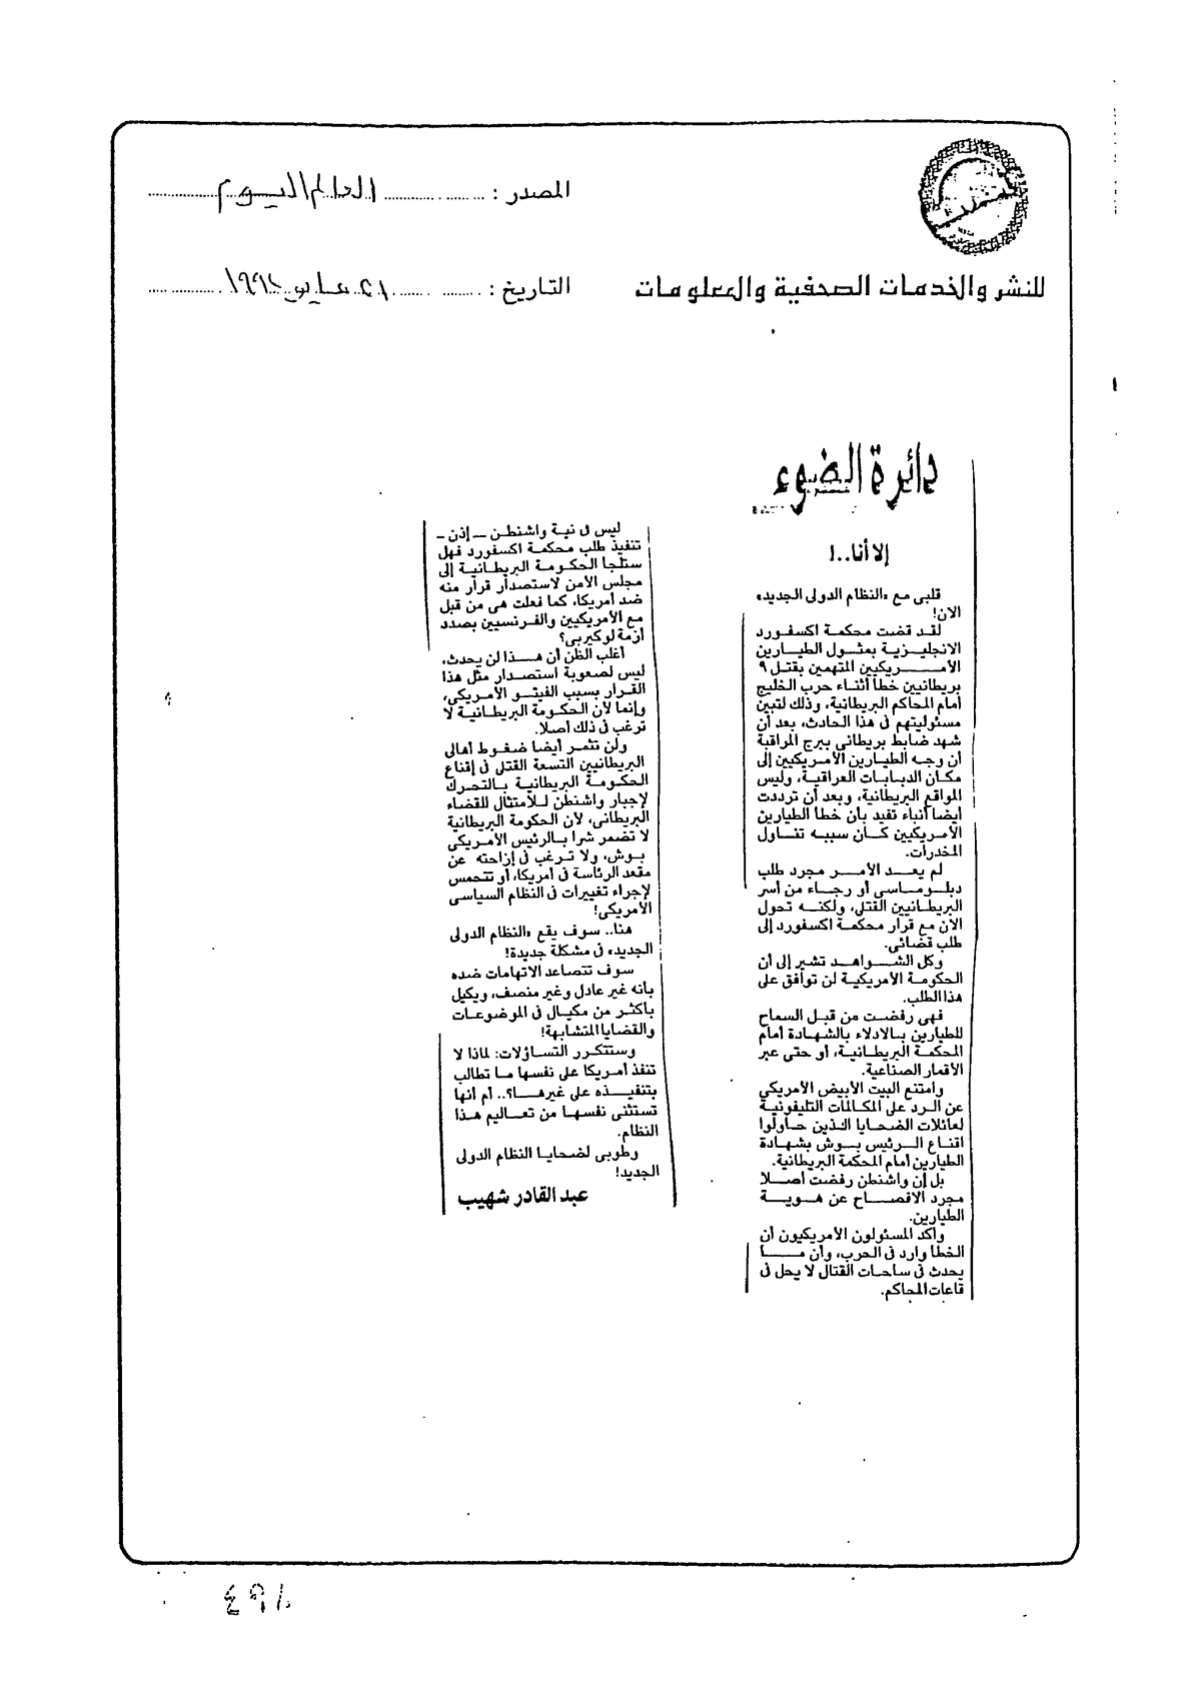 المصدر : العالم اليوم
للنشر والخدمات الصحفية والمعلومات
التاريخ : ٢١ مايو ١٩٩٢
دائرة الضوء
إلا أنا..!
قلبى مع «النظام الدولى الجديد»
الآن!
لقد قضت محكمة اكسفورد
الانجليزية بمثول الطيارين
الأمريكيين المتهمين بقتل ٩
بريطانيين خطأ أثناء حرب الخليج
أمام المحاكم البريطانية، وذلك لتبين
مسئوليتهم فى هذا الحادث، بعد أن
شهد ضابط بريطانى ببرج المراقبة
أن وجه الطيارين الأمريكيين إلى
مكان الدبابات العراقية، وليس
المواقع البريطانية، وبعد أن ترددت
أيضا أنباء تفيد بأن خطأ الطيارين
الأمريكيين كان سببه تناول
المخدرات.
لم يعد الأمر مجرد طلب
دبلوماسى أو رجاء من أسر
البريطانيين القتلى، ولكنه تحول
الآن مع قرار محكمة اكسفورد إلى
طلب قضائى.
وكل الشواهد تشير إلى أن
الحكومة الأمريكية لن توافق على
هذا الطلب.
فهى رفضت من قبل السماح
للطيارين بالادلاء بالشهادة أمام
المحكمة البريطانية، أو حتى عبر
الأقمار الصناعية.
وامتنع البيت الأبيض الأمريكى
عن الرد على المكالمات التليفونية
لعائلات الضحايا الذين حاولوا
اقناع الرئيس بوش بشهادة
الطيارين أمام المحكمة البريطانية.
بل إن واشنطن رفضت أصلا
مجرد الافصاح عن هوية
الطيارين.
وأكد المسئولون الأمريكيون أن
الخطأ وارد فى الحرب، وأن ما
يحدث فى ساحات القتال لا يحل فى
قاعات المحاكم.
ليس فى نية واشنطن – إذن –
تنفيذ طلب محكمة اكسفورد فهل
ستلجأ الحكومة البريطانية إلى
مجلس الأمن لاستصدار قرار منه
ضد أمريكا، كما فعلت هى من قبل
مع الأمريكيين والفرنسيين بصدد
أزمة لوكيربى؟
أغلب الظن أن هذا لن يحدث،
ليس لصعوبة استصدار مثل هذا
القرار بسبب الفيتو الأمريكى،
وإنما لأن الحكومة البريطانية لا
ترغب فى ذلك أصلا.
ولن تثمر أيضا ضغوط أهالى
البريطانيين التسعة القتلى فى إقناع
الحكومة البريطانية بالتحرك
لإجبار واشنطن للامتثال للقضاء
البريطانى، لأن الحكومة البريطانية
لا تضمر شرا بالرئيس الأمريكى
بوش، ولا ترغب فى إزاحته عن
مقعد الرئاسة فى أمريكا، أو تتحمس
لإجراء تغييرات فى النظام السياسى
الأمريكى!
هنا.. سوف يقع «النظام الدولى
الجديد» فى مشكلة جديدة!
سوف تتصاعد الاتهامات ضده
بأنه غير عادل وغير منصف، ويكيل
بأكثر من مكيال فى الموضوعات
والقضايا المتشابهة!
وستتكرر التساؤلات: لماذا لا
تنفذ أمريكا على نفسها ما تطالب
بتنفيذه على غيرها؟.. أم أنها
تستثنى نفسها من تعاليم هذا
النظام.
وطوبى لضحايا النظام الدولى
الجديد!
عبد القادر شهيب